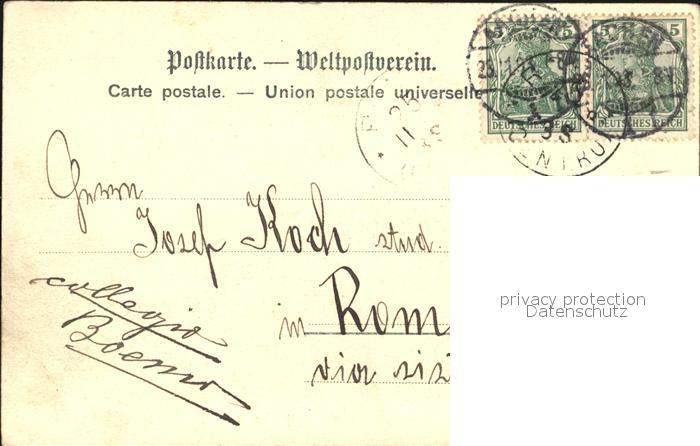 Postkarte. — Weltpostverein.
Carte postale. — Union postale universelle
5 5 5
DEUTSCHES REICH DEUTSCHES REICH
25 11
Herrn
Josef Koch stud.
in Rom
via sis
collegio
Boemo
privacy protection
Datenschutz